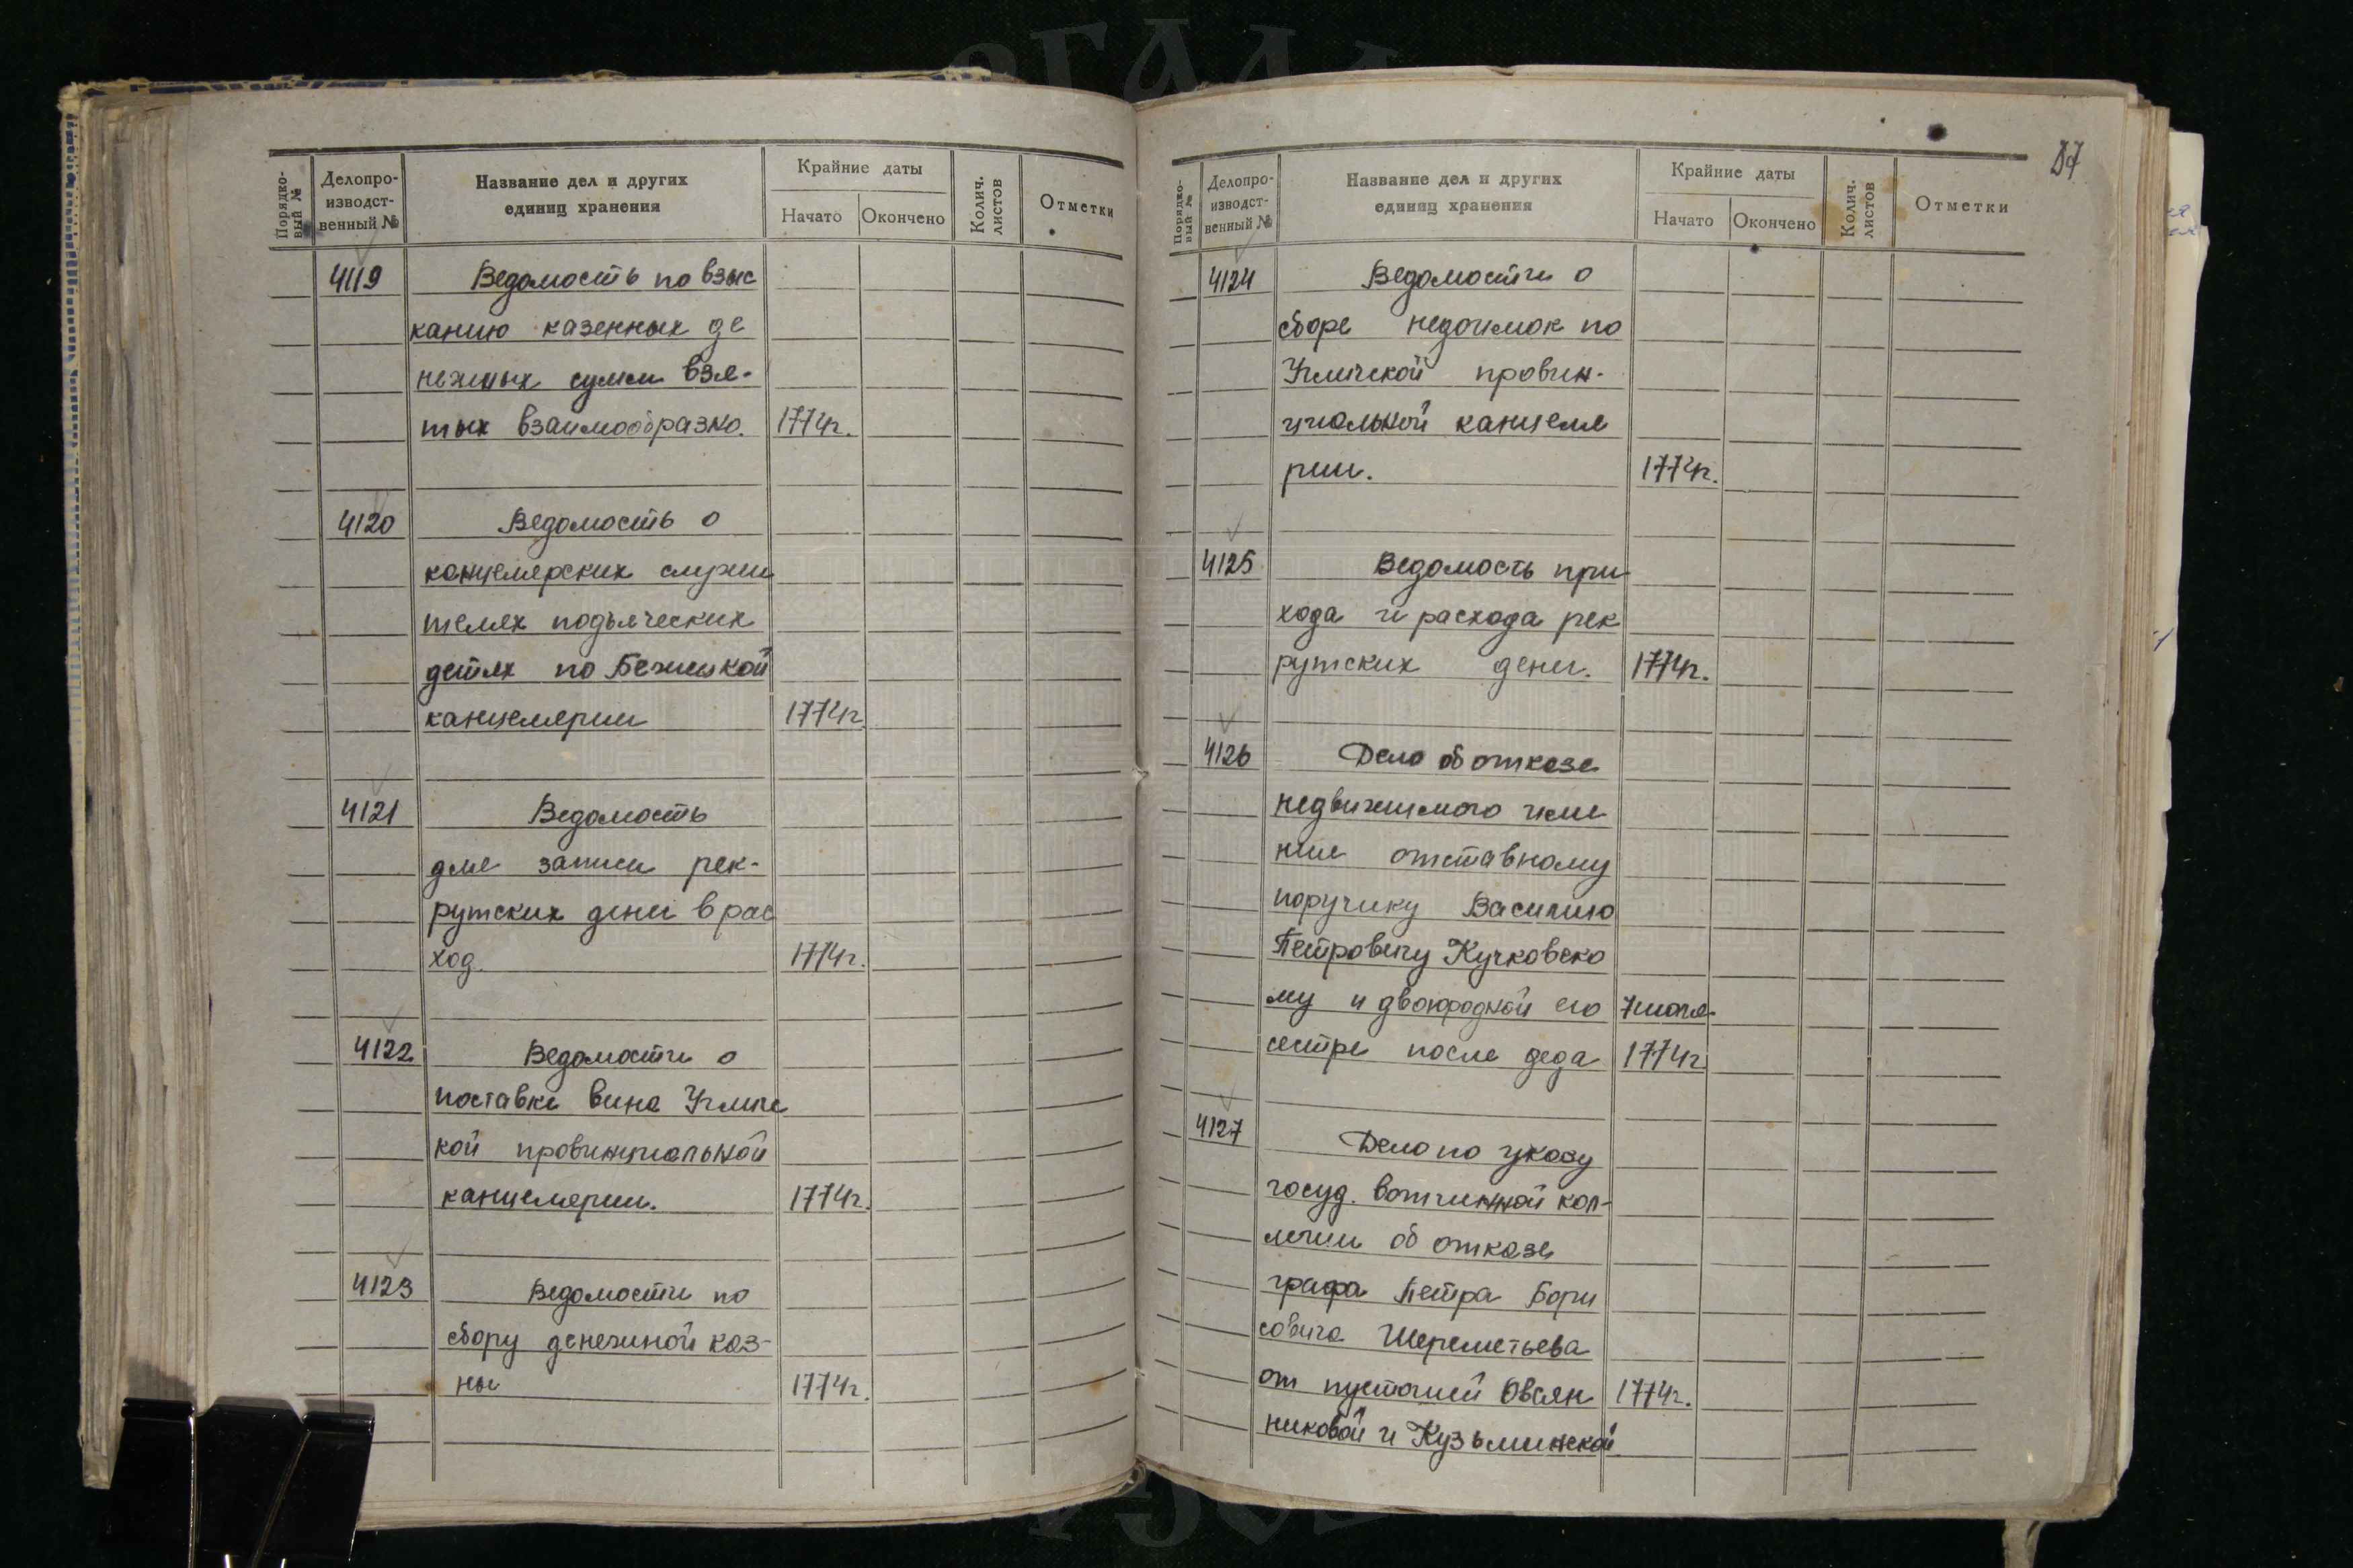 Порядко-
вый №
Делопро-
изводст-
венный №
Название дел и других
единиц хранения
Крайние даты
Начато
Окончено
Колич.
листов
Отметки
4119 Ведомость по взыс
канию казенных де
нежных сумм взя-
тых взаимообразно. 1774г.
4120 Ведомость о
канцелярских служи
телях подьяческих
детях по Бежицкой
канцелярии 1774г.
4121 Ведомость
для записи рек-
рутских денег в рас
ход. 1774г.
4122 Ведомости о
поставке вина Углич
кой провинциальной
канцелярии. 1774г.
4123 Ведомости по
сбору денежной каз-
ны 1774г.
87
Порядко-
вый №
Делопро-
изводст-
венный №
Название дел и других
единиц хранения
Крайние даты
Начато
Окончено
Колич.
листов
Отметки
4124 Ведомости о
сборе недоимок по
Угличской провин-
циальной канцеля
рии. 1774г.
4125 Ведомость при
хода и расхода рек
рутских денег. 1774г.
4126 Дело об отказе
недвижимого име
ния отставному
поручику Василию
Петровичу Кучковско
му и двоюродной его 7 июля
сестре после деда 1774г
4127 Дело по указу
госуд. вотчинной кол-
легии об отказе
графа Петра Бори
совича Шереметьева
от пустошей Овсян 1774г.
никовой и Кузьминской